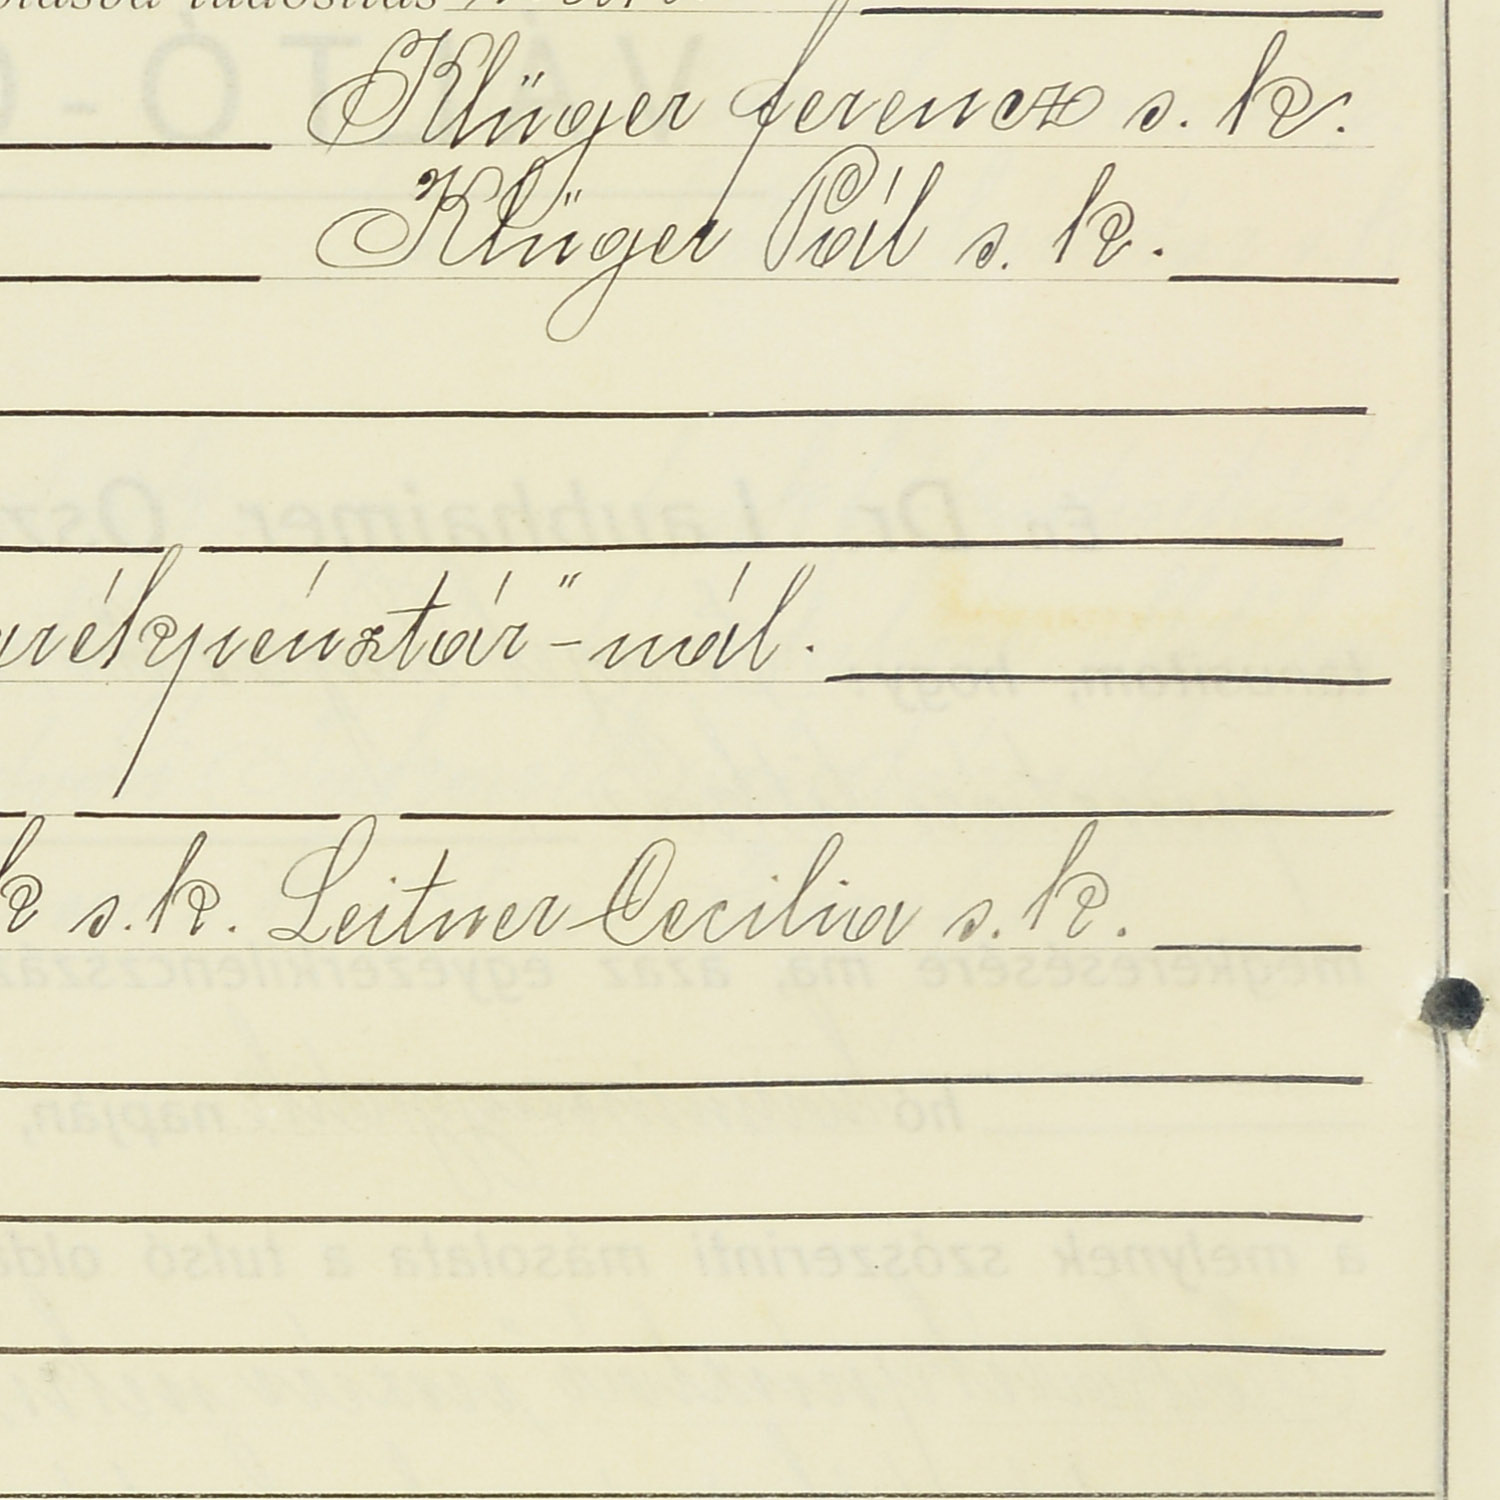 Klüger ferencz s. k.
Klüger Pál s. k.
arékpénztár"-nál.
k s. k. Leitner Cecilia s. k.